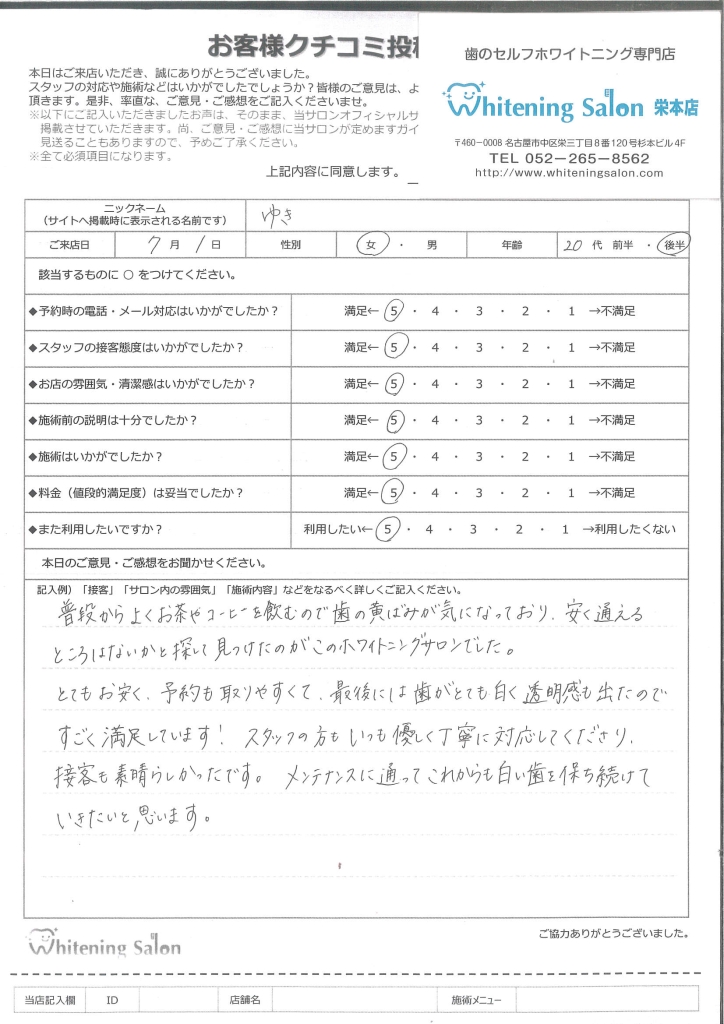 お客様クチコミ投稿
本日はご来店いただき、誠にありがとうございました。
スタッフの対応や施術などはいかがでしたでしょうか?皆様のご意見は、よ
頂きます。是非、率直な、ご意見・ご感想をご記入くださいませ。
※以下にご記入いただきましたお声は、そのまま、当サロンオフィシャルサ
掲載させていただきます。尚、ご意見・ご感想に当サロンが定めますガイ
見送ることもありますので、予めご了承ください。
※全て必須項目になります。
上記内容に同意します。
歯のセルフホワイトニング専門店
Whitening Salon 栄本店
〒460-0008 名古屋市中区栄三丁目8番120号杉本ビル4F
TEL 052-265-8562
http://www.whiteningsalon.com
ニックネーム
(サイトへ掲載時に表示される名前です) ゆき
ご来店日 7月1日 性別 女・男 年齢 20代 前半・後半
該当するものに○をつけてください。
◆予約時の電話・メール対応はいかがでしたか? 満足← 5・4・3・2・1 →不満足
◆スタッフの接客態度はいかがでしたか? 満足← 5・4・3・2・1 →不満足
◆お店の雰囲気・清潔感はいかがでしたか? 満足← 5・4・3・2・1 →不満足
◆施術前の説明は十分でしたか? 満足← 5・4・3・2・1 →不満足
◆施術はいかがでしたか? 満足← 5・4・3・2・1 →不満足
◆料金(値段的満足度)は妥当でしたか? 満足← 5・4・3・2・1 →不満足
◆また利用したいですか? 利用したい← 5・4・3・2・1 →利用したくない
本日のご意見・ご感想をお聞かせください。
記入例)「接客」「サロン内の雰囲気」「施術内容」などをなるべく詳しくご記入ください。
普段からよくお茶やコーヒーを飲むので歯の黄ばみが気になっており、安く通える
ところはないかと探して見つけたのがこのホワイトニングサロンでした。
とてもお安く、予約も取りやすくて、最後には歯がとても白く透明感も出たので
すごく満足しています! スタッフの方もいつも優しく丁寧に対応してくださり、
接客も素晴らしかったです。 メンテナンスに通ってこれからも白い歯を保ち続けて
いきたいと思います。
Whitening Salon
ご協力ありがとうございました。
当店記入欄 ID 店舗名 施術メニュー